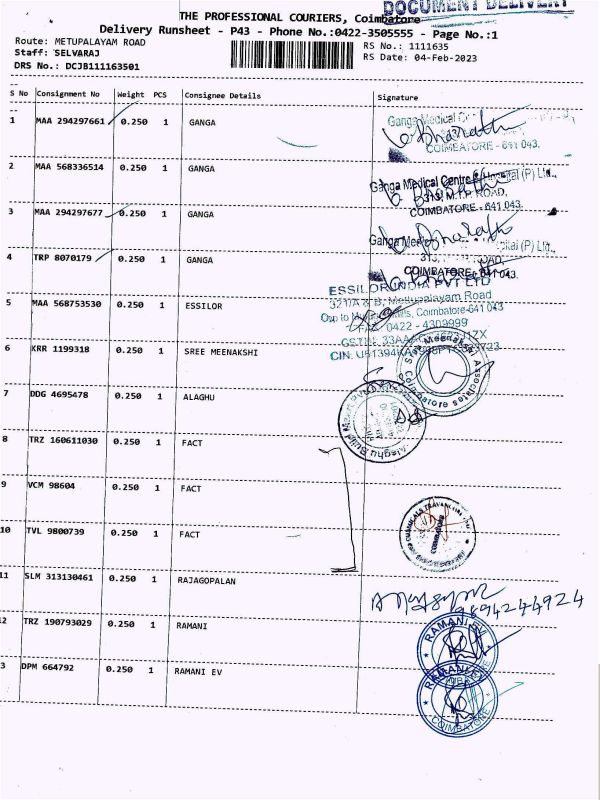 DOCUMENT DELIVERY
THE PROFESSIONAL COURIERS, Coimbatore
Delivery Runsheet - P43 - Phone No.:0422-3505555 - Page No.:1
Route: METUPALAYAM ROAD
RS No.: 1111635
Staff: SELVARAJ
RS Date: 04-Feb-2023
DRS No.: DCJB111163501
S No Consignment No Weight PCS Consignee Details Signature
1 MAA 294297661 0.250 1 GANGA
Ganga Medical
COIMBATORE - 641 043.
2 MAA 568336514 0.250 1 GANGA
Ganga Medical Centre & Hospital (P) Ltd.,
313, M.T.P. ROAD,
COIMBATORE - 641 043.
3 MAA 294297677 0.250 1 GANGA
4 TRP 8070179 0.250 1 GANGA
COIMBATORE - 641 043.
5 MAA 568753530 0.250 1 ESSILOR
ESSILOR INDIA PVT LTD
321/A & B, Mettupalayam Road
Coimbatore-641 043
0422 - 4309999
6 KRR 1199318 0.250 1 SREE MEENAKSHI
Sree Meenakshi Associates
Coimbatore
7 DDG 4695478 0.250 1 ALAGHU
8 TRZ 160611030 0.250 1 FACT
9 VCM 98604 0.250 1 FACT
10 TVL 9800739 0.250 1 FACT
11 SLM 313130461 0.250 1 RAJAGOPALAN
9894244924
12 TRZ 190793029 0.250 1 RAMANI
RAMANI EV
3 DPM 664792 0.250 1 RAMANI EV
RAMANI EV
COIMBATORE